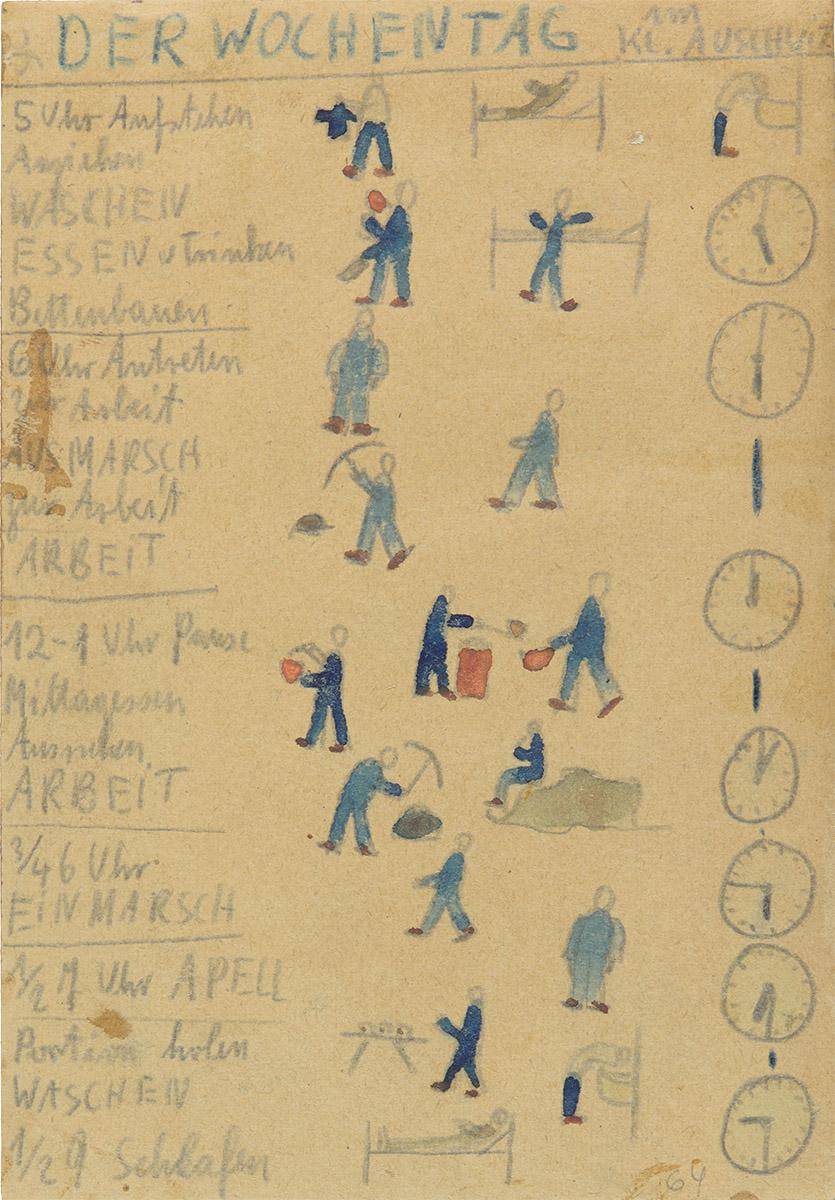 DER WOCHENTAG im
KL. AUSCHWITZ
5 Uhr Aufstehen
Anziehen
WASCHEN
ESSEN u Trinken
Bettenbauen
6 Uhr Antreten
zur Arbeit
AUSMARSCH
zur Arbeit
ARBEIT
12-1 Uhr Pause
Mittagessen
Ausruhen
ARBEIT
3/4 6 Uhr
EINMARSCH
1/2 7 Uhr APELL
Portion holen
WASCHEN
1/2 9 Schlafen
64